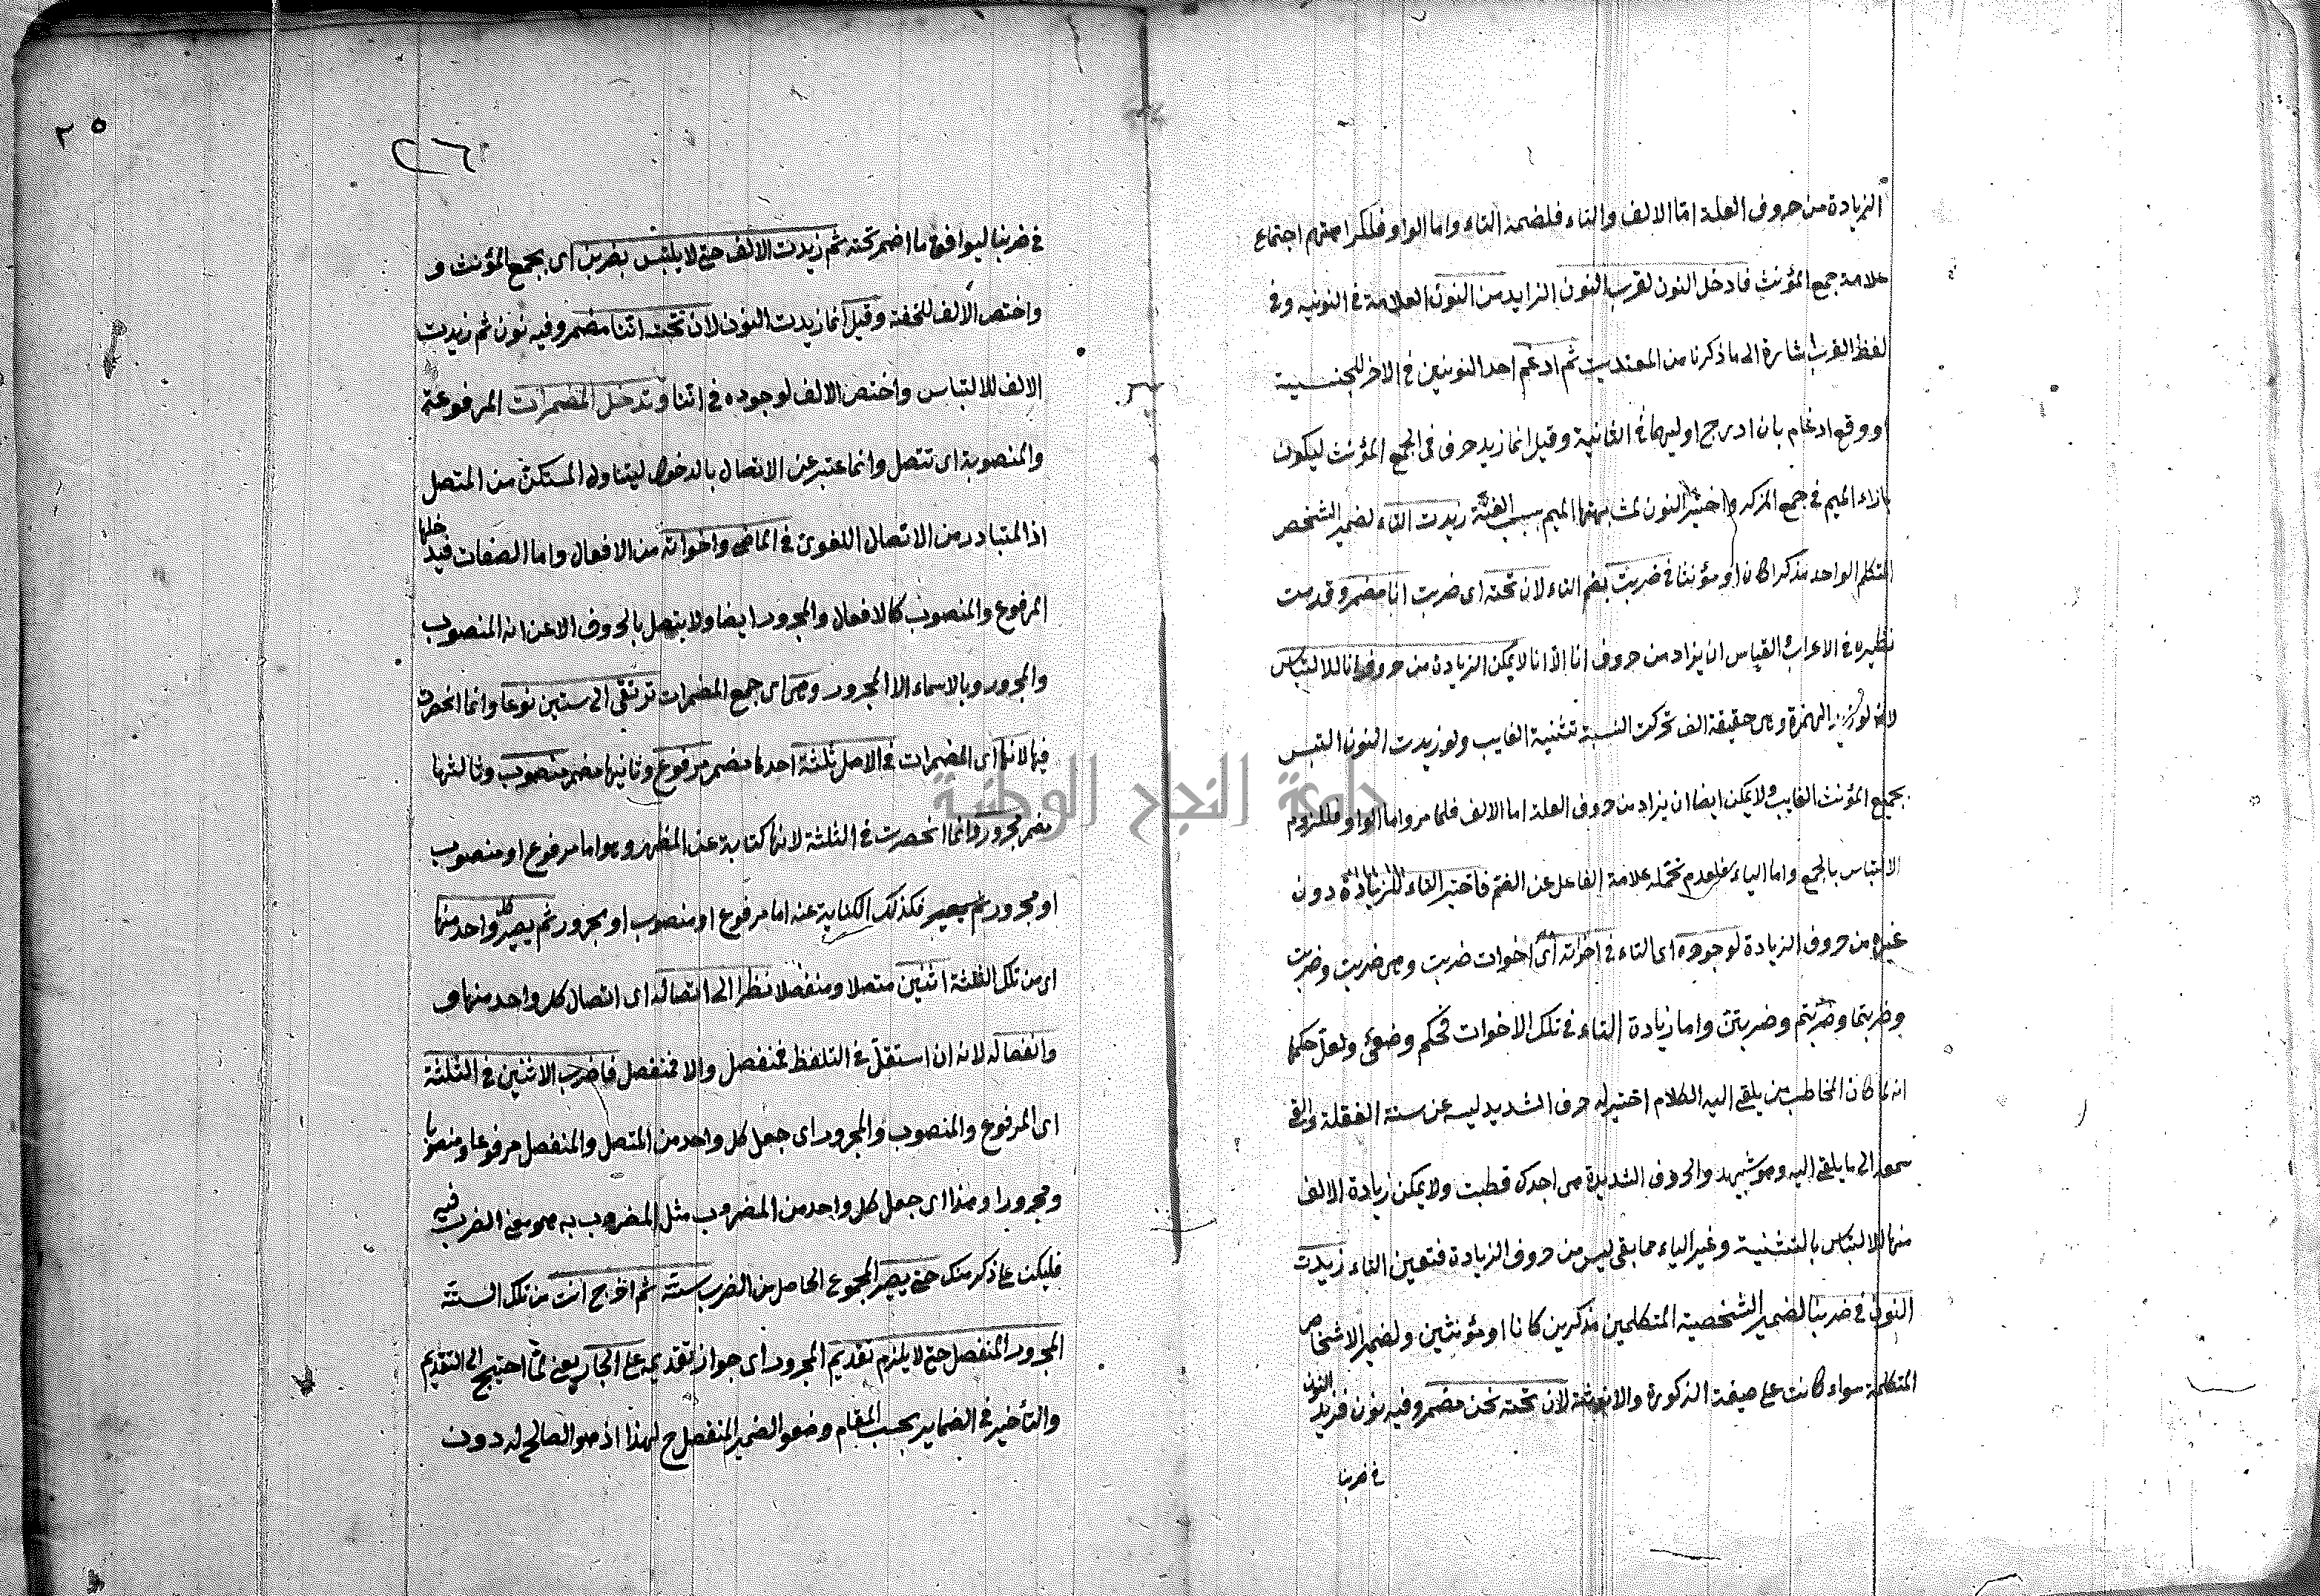 الزيادة من حروف العلة اما الالف والتاء فلضمة التاء واما الواو فلكراهتهم اجتماع
علامة جمع المؤنث فادخل النون لقرب النون الزايد من النون العلامة في النونية وفي
لفظ القرب اشارة الى ما ذكرنا من ثم ادغم احد النونين في الاخر للجنسية
او وقع ادغام بان ادرج اوليهما في الثانية وقيل انما زيد حرف في الجمع المؤنث ليكون
بازاء الميم في جمع المذكر واختير النون لمشابهتها الميم بسبب الغنة زيدت التاء لضمير الشخص
المتكلم الواحد مذكرا كان او مؤنثا في ضربت بضم التاء لان تحته اى ضربت انا مضمر وقد مرت
نظيره في الاعراب القياس ان يزاد من حروف انا الا انا لا يمكن الزيادة من حروف انا للالتباس
لانه لو زيد الهمزة وهى حقيقة الف تحركت التبس تثنية الغايب ولو زيدت النون التبس
بجميع المؤنث الغايب ولا يمكن ايضا ان يزاد من حروف العلة اما الالف فلما مر واما الواو فللزوم
الالتباس بالجمع واما الياء فلعدم تحمله علامة الفاعل عن الضم فاختير التاء للزيادة دون
غيره من حروف الزيادة لوجوده اى التاء في اخواته اى اخوات ضربت وهى ضربت وضربت
وضربتما وضربتم وضربتن واما زيادة التاء في تلك الاخوات فحكم وضعى ولعل حكمها
انه لما كان المخاطب من يلقى اليه الكلام اختير له حرف الشديد عن سنة الغفلة والقى
سمعه الى ما يلقى اليه وهو شهيد والحروف الشديدة هى اجدك قطبت ولا يمكن زيادة الالف
منها للالتباس بالتثنية وغير الياء مما بقى ليس من حروف الزيادة فتعين التاء زيدت
النون في ضربنا لضمير الشخصية المتكلمين مذكرين كانا او مؤنثين ولضمير الاشخاص
المتكلمة سواء كانت على صيغة الذكورة والانوثة لان تحته نحن مضمر وفيه نون فزيد النون
في ضربنا
٢٥
٢٦
في ضربنا ليوافق ما اضمر تحته ثم زيدت الالف حتى لا يلتبس بضربن اى بجمع المؤنث و
واختص الالف للخفة وقيل انما زيدت النون لان تحته اننا مضمر وفيه نون ثم زيدت
الالف للالتباس واختص الالف لوجوده في اننا وتدخل المضمرات المرفوعة
والمنصوبة اى تتصل وانما عتبر عن الاتصال بالدخول ليتناول المستكن من المتصل
اذ المتبادر من الاتصال اللغوى في الماضى واخواته من الافعال واما الصفات فيدخلها
المرفوع والمنصوب كالافعال والمجرور ايضا ولا يتصل بالحروف الا عن انه المنصوب
والمجرور وبالاسماء الا المجرور وهى اى جمع المضمرات ترتقى الى ستين نوعا وانما انحصرت
فيها لانها اى المضمرات في الاصل ثلثة احدها مضمر مرفوع وثانيها مضمر منصوب وثالثها
مضمر مجرور وانما انحصرت في الثلثة لانها كناية عن المظهر وهو اما مرفوع او منصوب
او مجرور فكذلك الكناية عنه اما مرفوع او منصوب او مجرور ثم يصير كل واحد منها
اى من تلك الثلثة اثنين متصلا ومنفصلا نظرا الى اتصاله اى اتصال كل واحد منها و
وانفصاله لانه ان استقل في التلفظ فمنفصل والا فمتصل فاضرب الاثنين في الثلثة
اى المرفوع والمنصوب والمجرور اى جعل كل واحد من المتصل والمنفصل مرفوعا ومنصوبا
ومجرورا وهذا اى جعل كل واحد من المضروب مثل المضروب به هو معنى الضرب فيه
فليكن على ذكر منك حتى يصير المجموع الحاصل من الضرب ستة ثم اخرج انت من تلك الستة
المجرور المنفصل حتى لا يلزم تقديم المجرور اى جواز تقديمه على الجار يعنى لما احتيج الى التقديم
والتأخير في الضماير بحسب المقام وضعوا الضمير المنفصل ح لهذا اذ هو الصالح له دون
جامعة النجاح الوطنية